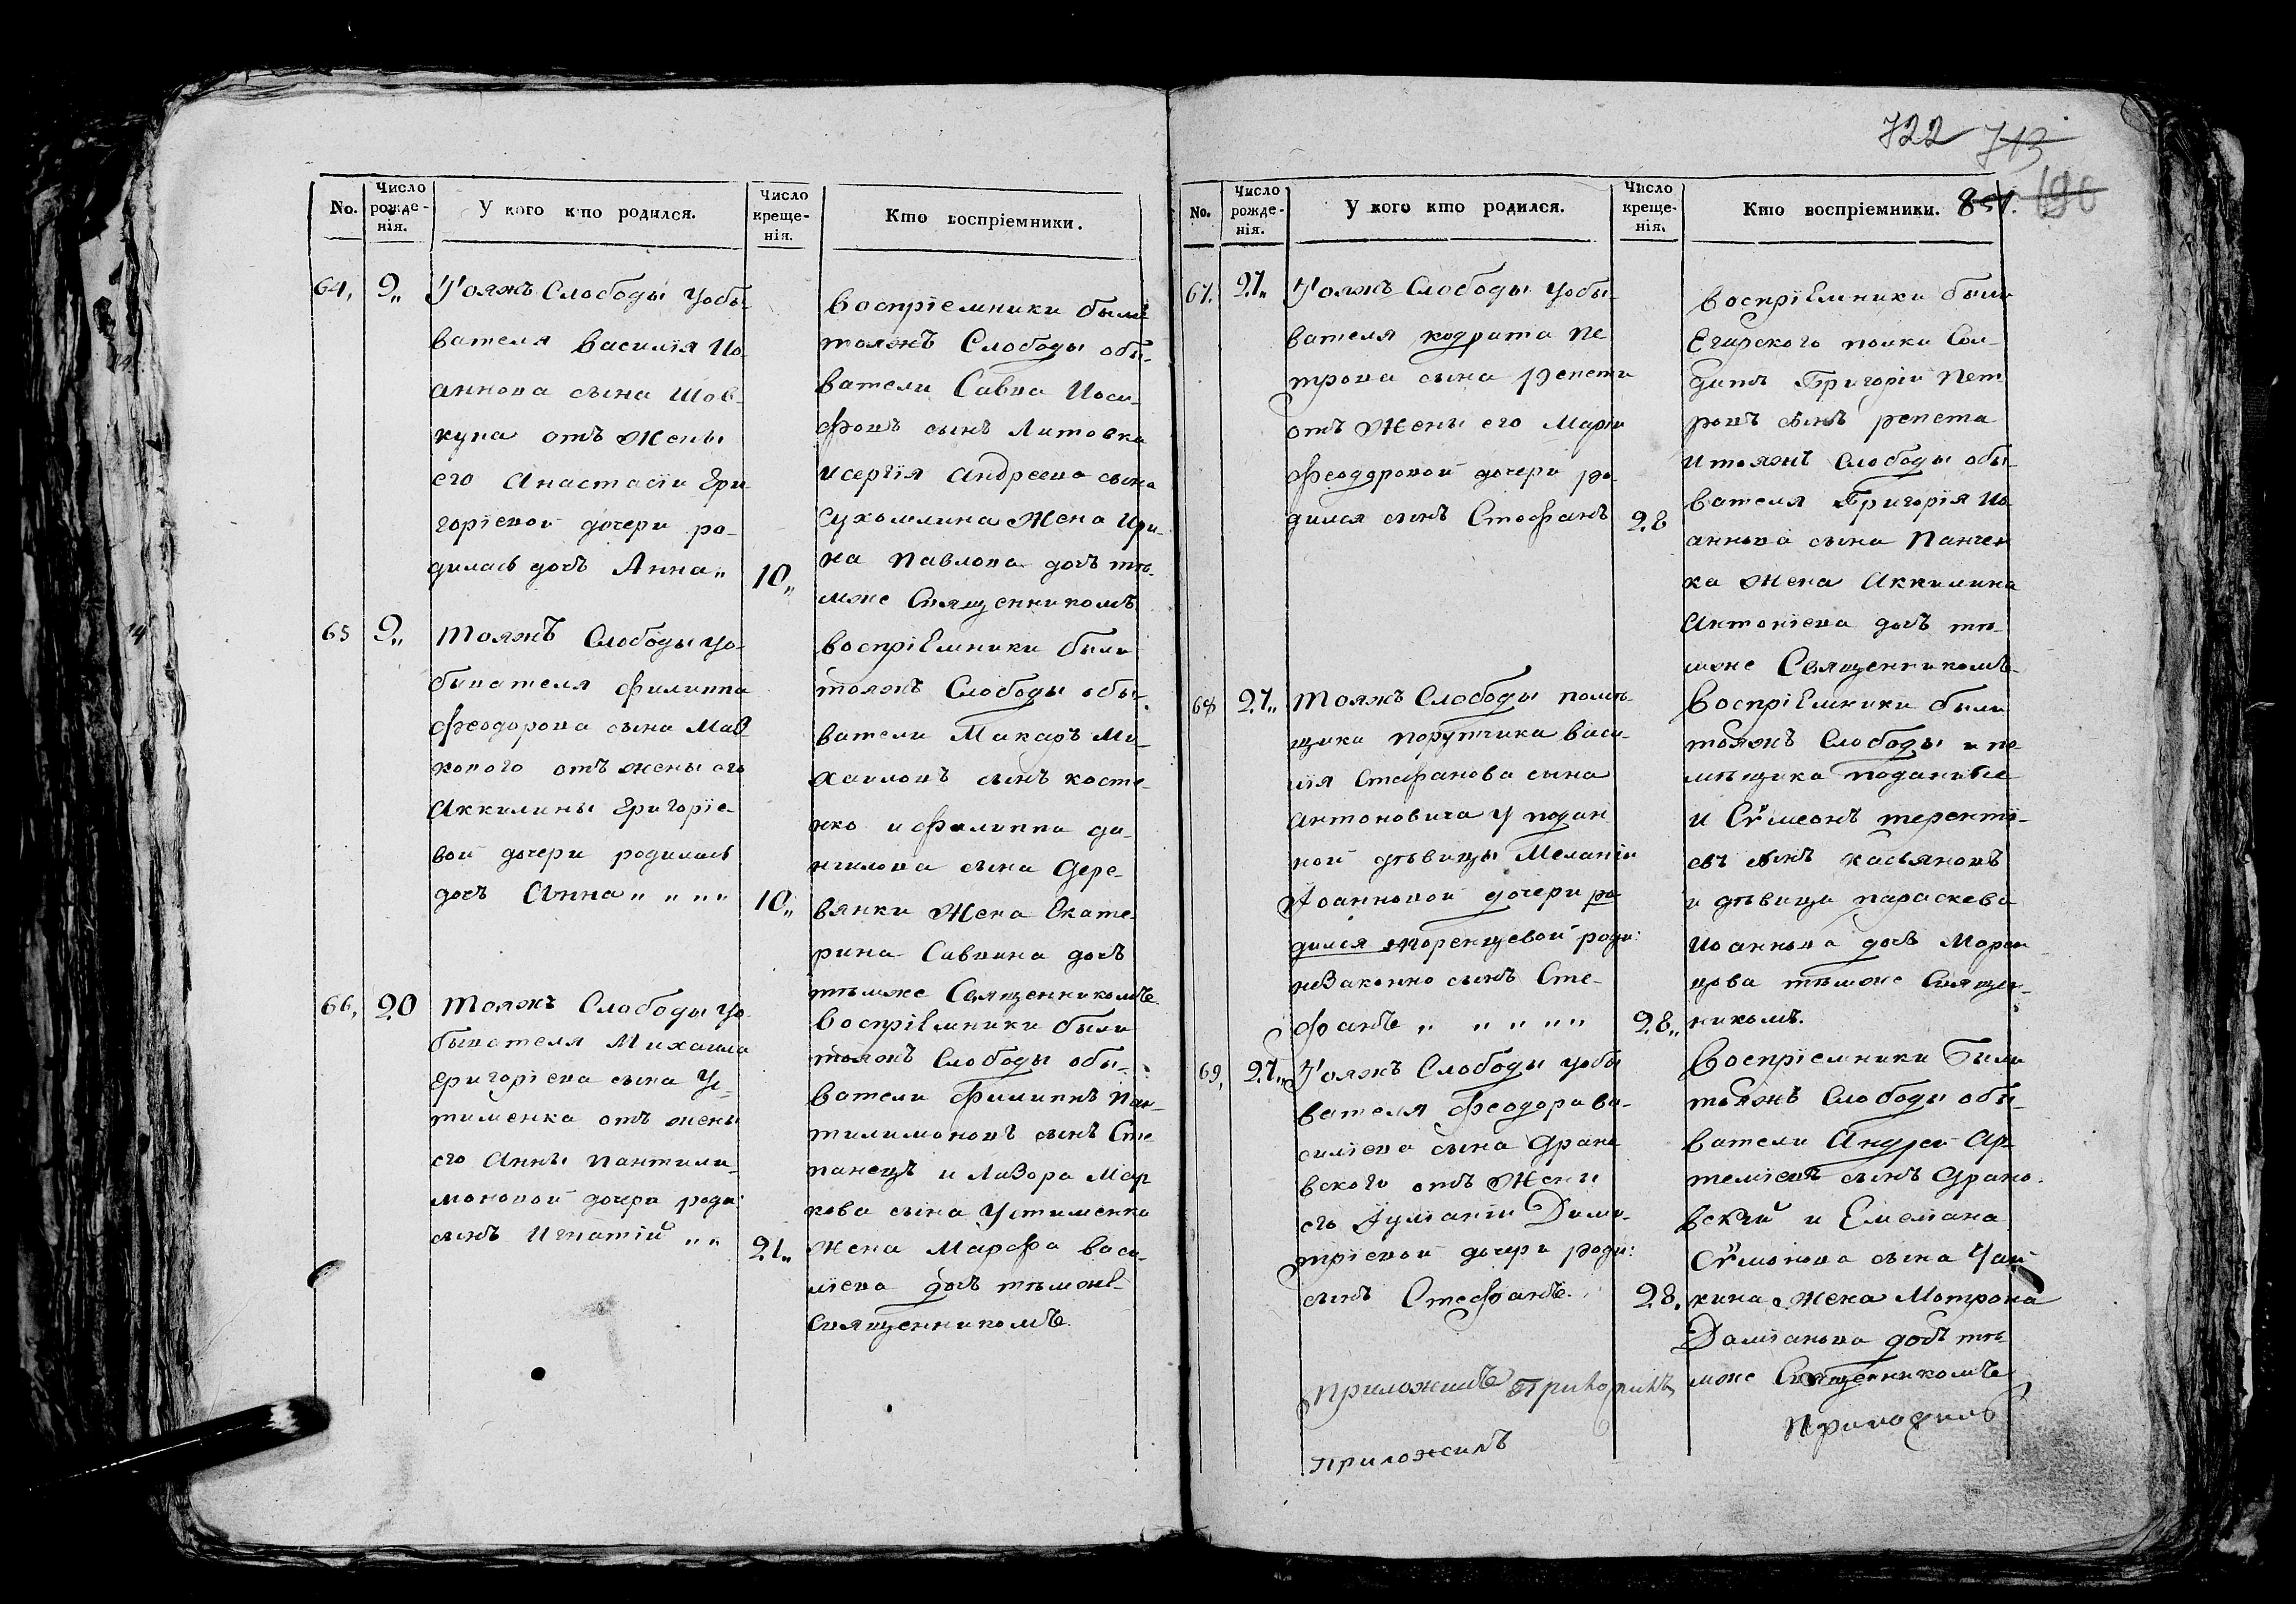 722 713
851. 690
No. Число рожде- нія. У кого кто родился. Число креще- нія. Кто воспріемники.
64, 9,, Тояжъ Слободы уобы-
вателя Василія Ио-
аннова сына Шов-
купа отъ Жены
его Анастасіи Гри
горіевой дочери ро-
дилась дочъ Анна,, 10,,
Воспріемники были
тояжъ Слободы обы-
ватели Савва Иоси-
фовъ сынъ Литовка
и сергія Андреева сына
Сухомлина Жена Ири-
на Павлова дочъ тѣ-
мже Священникомъ
65 9,, Тояжъ Слободы уо-
бывателя Филиппа
Феодорова сына Мав
кового отъ жены его
Аккилины Григоріе-
вой дочери родилась
дочъ Анна,, ,, ,, ,, 10,,
Воспріемники были
тояжъ Слободы обы-
ватели Макаръ Ми-
хаиловъ сынъ косте-
нко и Филиппа да-
нилова сына Дере-
вянки Жена Екате-
рина Саввина дочъ
тѣмже Священникомъ
66, 20 Тояжъ Слободы уо-
бывателя Михаила
Григоріева сына Ус-
тименка отъ жены
его Анны Пантили-
моновой дочери роди:
сынъ Игнатій ,, ,, 21,,
Воспріемники были
тояжъ Слободы обы-
ватели Филиппъ Пан-
тилимоновъ сынъ Сте
панецъ и Лазора Мар
кова сына Устименка
Жена Марфа Васи-
ліева дочъ тѣмже
Священникомъ.
No. Число рожде- нія. У кого кто родился. Число креще- нія. Кто воспріемники.
67. 27,, Тояжъ Слободы уобы-
вателя кодрата Пе
трова сына репети
отъ Жены его Маріи
Феодоровой дочери ро-
дился сынъ Стефанъ 28
Воспріемники были
Егарского полка Сол-
датъ Григорій Пет
ровъ сынъ репета
и тояжъ Слободы обы-
вателя Григорія Ио-
аннова сына Панчен
ка Жена Аккилина
Антоніева дочъ тѣ-
мже Священникомъ
68 27,, Тояжъ Слободы помѣ-
щика порутчика Васи-
лія Стефанова сына
Антоновича у подан
ной дѣвицы Меланіи
Іоанновой дочери ро
дился Моренцевой роди:
незаконно сынъ Сте-
фанъ ,, ,, ,, ,, ,, 28,,
Воспріемники были
тояжъ Слободы и по-
мѣщика поданные
и Сѵмеонъ терентї-
евъ сынъ касьяновъ
и дѣвица параскева
Иоаннова дочъ Морен
цова тѣмже Священ-
никомъ.
69, 27,, Тояжъ Слободы уобы
вателя Феодора Ва-
силіева сына Драно
вского отъ Жены
его Іуліаніи Дими-
тріевой дочери роди:
сынъ Стефанъ. 28.
Воспріемники были
тояжъ Слободы обы-
ватели Андрей Ар-
теміевъ сынъ Драно-
вскій и Емеліана
Сѵмонова сына Чай
кина Жена Мотрона
Даміанова дочъ тѣ-
мже Священникомъ
Приложилъ
приложилъ